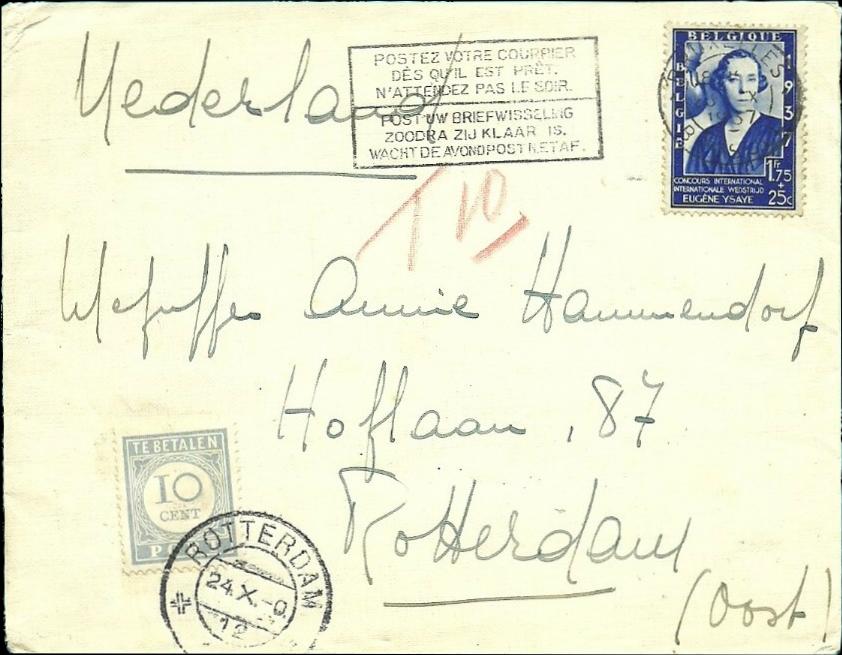 Nederland
POSTEZ VOTRE COURRIER
DÈS QU'IL EST PRÊT.
N'ATTENDEZ PAS LE SOIR.
POST UW BRIEFWISSELING
ZOODRA ZIJ KLAAR IS.
WACHT DE AVONDPOST NIET AF.
BELGIQUE
BELGIË
1937
1Fr75
+
25c
CONCOURS INTERNATIONAL
INTERNATIONALE WEDSTRIJD
EUGÈNE YSAYE
T 10
Mejuffer Annie Hammendorf
Hoflaan, 87
Rotterdam
(Oost)
TE BETALEN
10
CENT
ROTTERDAM
24.X.-0
12